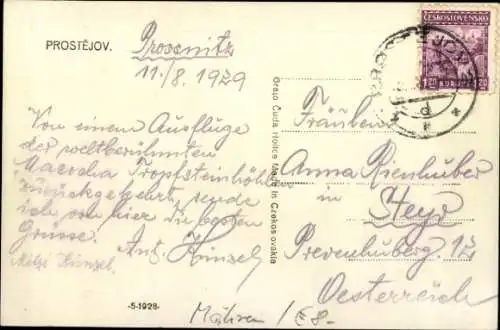 PROSTĚJOV.
Prossnitz
11./8. 1929
Von einem Ausfluge
der weltberühmten
Macocha Tropfsteinhöhle
zurückgekehrt, sende
ich von hier die besten
Grüsse.
Ant. Hinsel
Mitzi Hinzel.
-5-1928-
Mähren /
Grafo Čuda Holice Made in Czekoslovakia
ČESKOSLOVENSKO
1.20 1.20
Fräulein
Anna Rienhuber
in
Steyr
Prevenhuberg. 12
Oesterreich